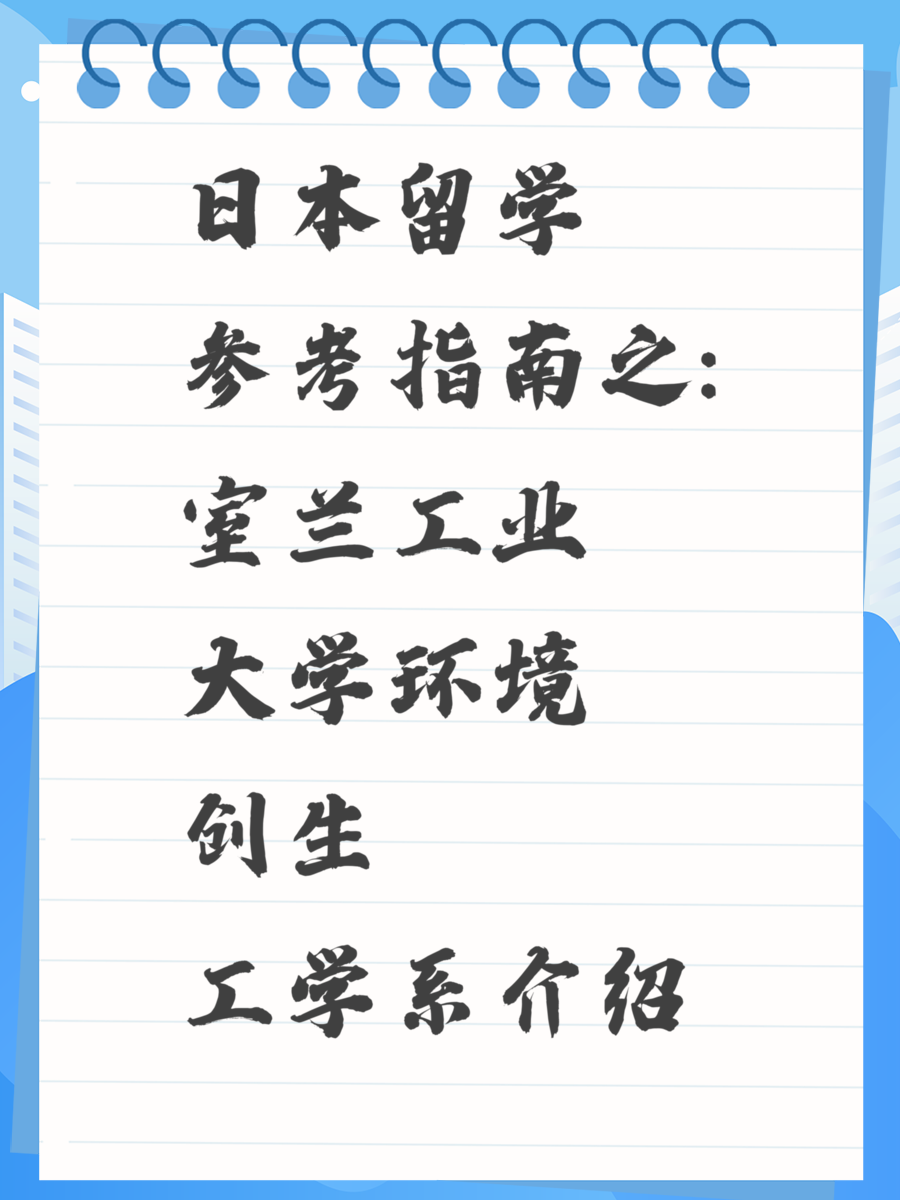 日本留学
参考指南之:
室兰工业
大学环境
创生
工学系介绍